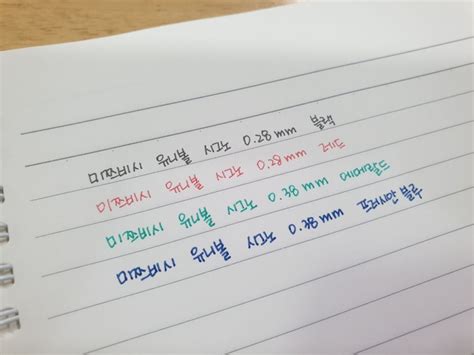 미쯔비시 유니볼 시그노 0.28mm 블랙
미쯔비시 유니볼 시그노 0.28mm 레드
미쯔비시 유니볼 시그노 0.38mm 에메랄드
미쯔비시 유니볼 시그노 0.38mm 프러시안 블루